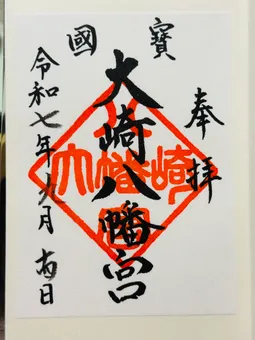 奉拝
國寶
大崎八幡宮
令和七年九月吉日